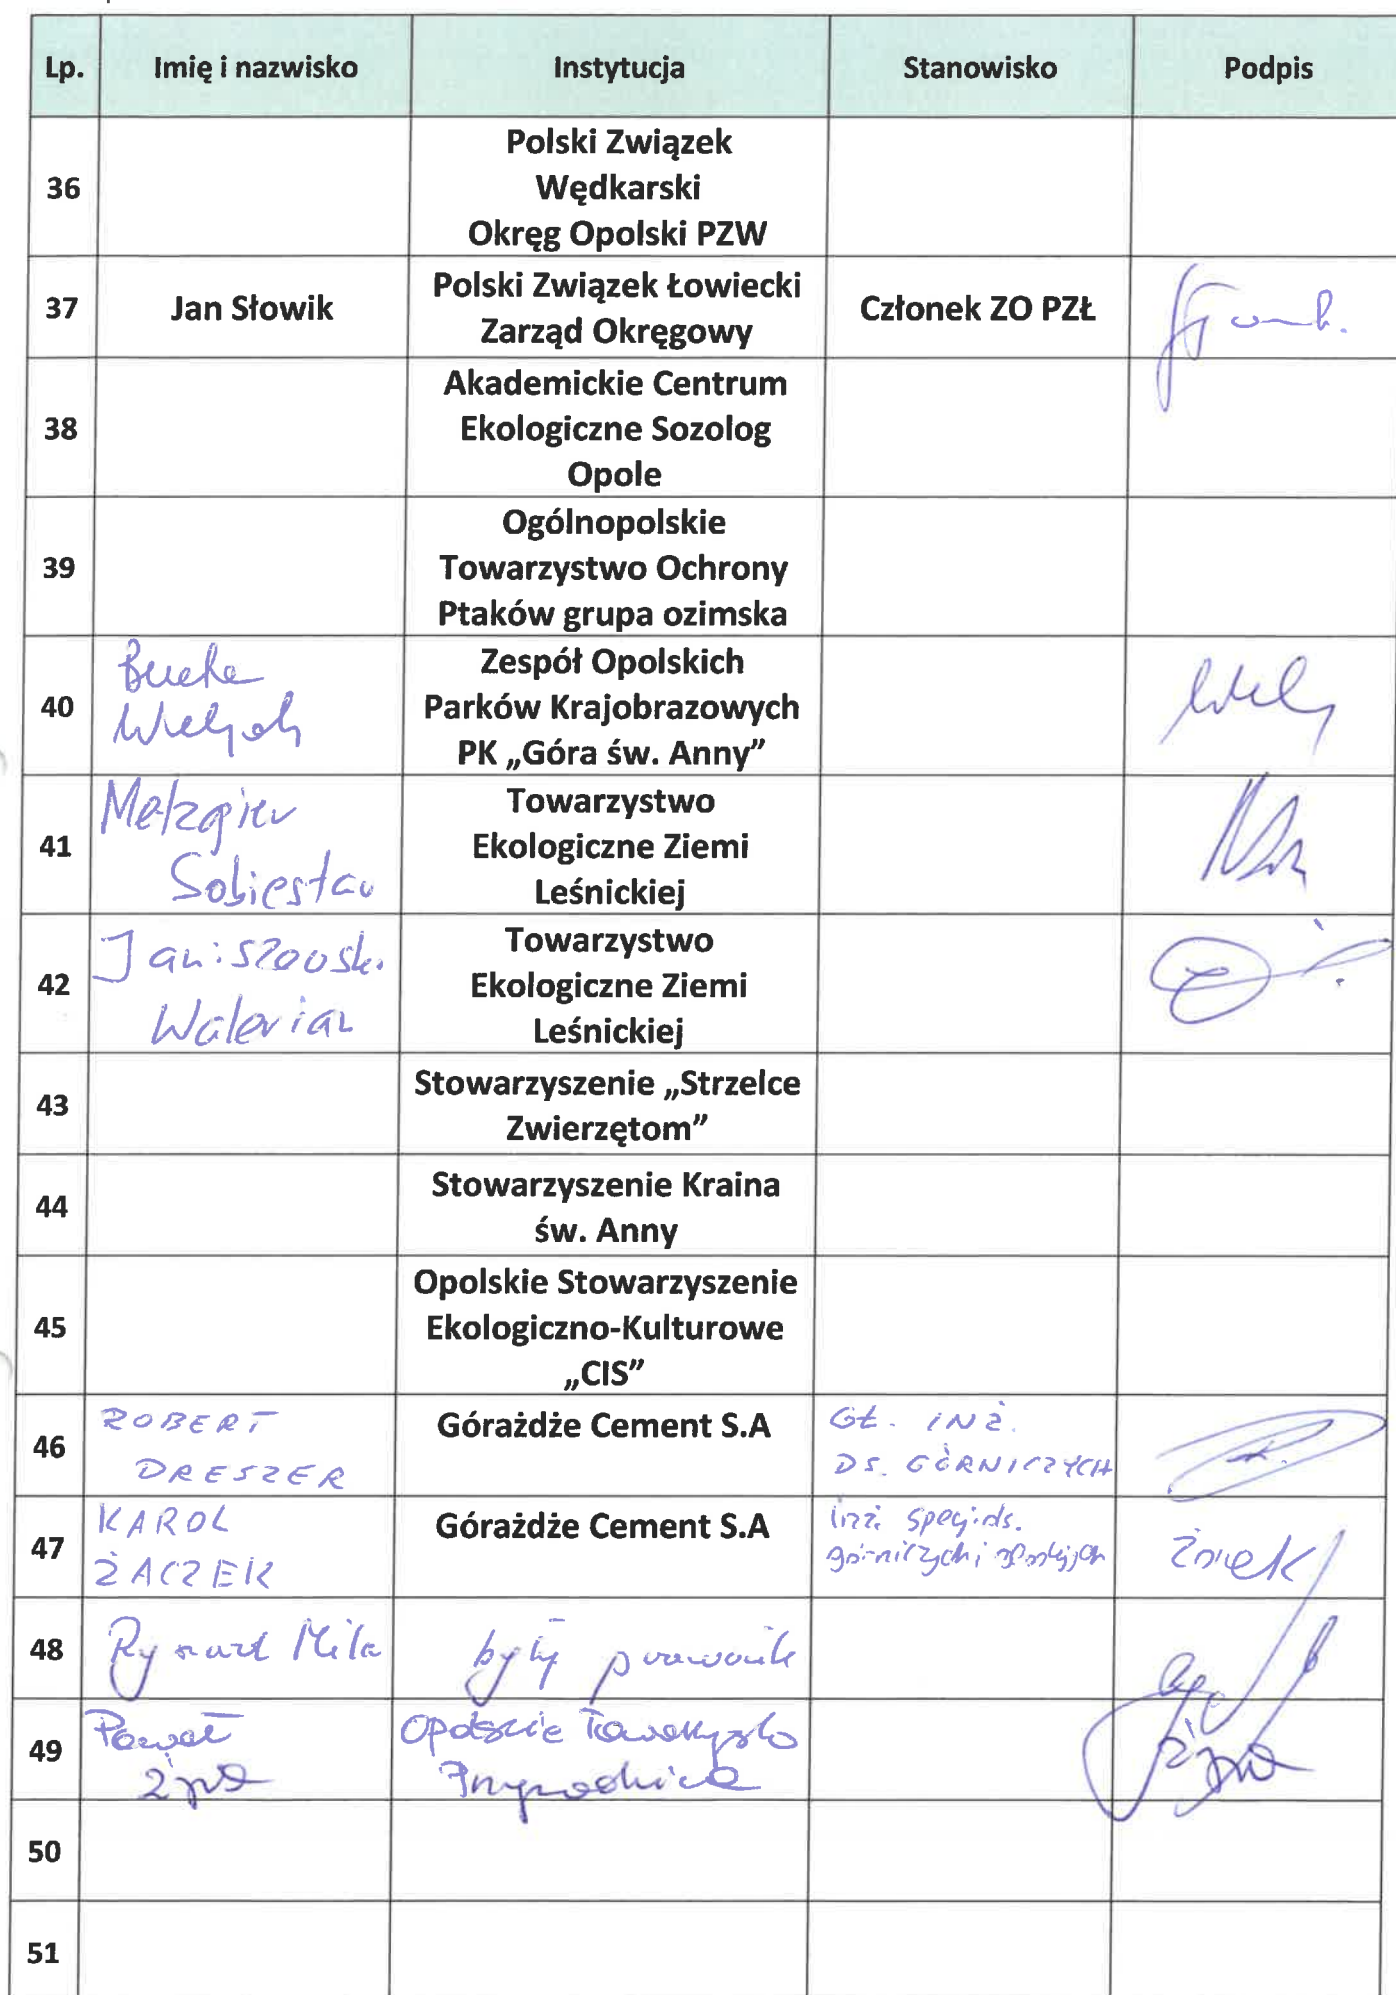 Lp. Imię i nazwisko Instytucja Stanowisko Podpis
36 Polski Związek
Wędkarski
Okręg Opolski PZW
37 Jan Słowik Polski Związek Łowiecki
Zarząd Okręgowy
Członek ZO PZŁ
38 Akademickie Centrum
Ekologiczne Sozolog
Opole
39 Ogólnopolskie
Towarzystwo Ochrony
Ptaków grupa ozimska
40 Zespół Opolskich
Parków Krajobrazowych
PK „Góra św. Anny”
41 Sobiesław
Towarzystwo
Ekologiczne Ziemi
Leśnickiej
42 Janiszowski
Walerian
Towarzystwo
Ekologiczne Ziemi
Leśnickiej
43 Stowarzyszenie „Strzelce
Zwierzętom”
44 Stowarzyszenie Kraina
św. Anny
45 Opolskie Stowarzyszenie
Ekologiczno-Kulturowe
„CIS”
46 ROBERT
DRESZER
Górażdże Cement S.A
GŁ. INŻ.
DS. GÓRNICZYCH
47 KAROL
ŻACZEK
Górażdże Cement S.A
inż. specj. ds.
górniczych i
48 Ryszard były pracownik
49 Paweł
Opolskie Towarzystwo
Przyrodnicze
50
51